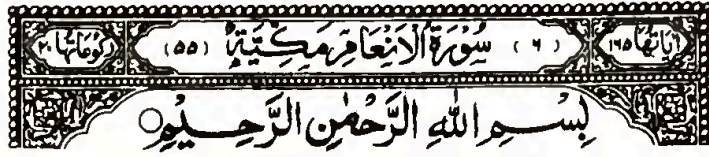 اٰيَاتُهَا ١٦٥ (٦) سُوْرَةُ الْاَنْعَامِ مَكِّيَّةٌ (٥٥) رُكُوْعَاتُهَا ٢٠
بِسْمِ اللهِ الرَّحْمٰنِ الرَّحِيْمِ○